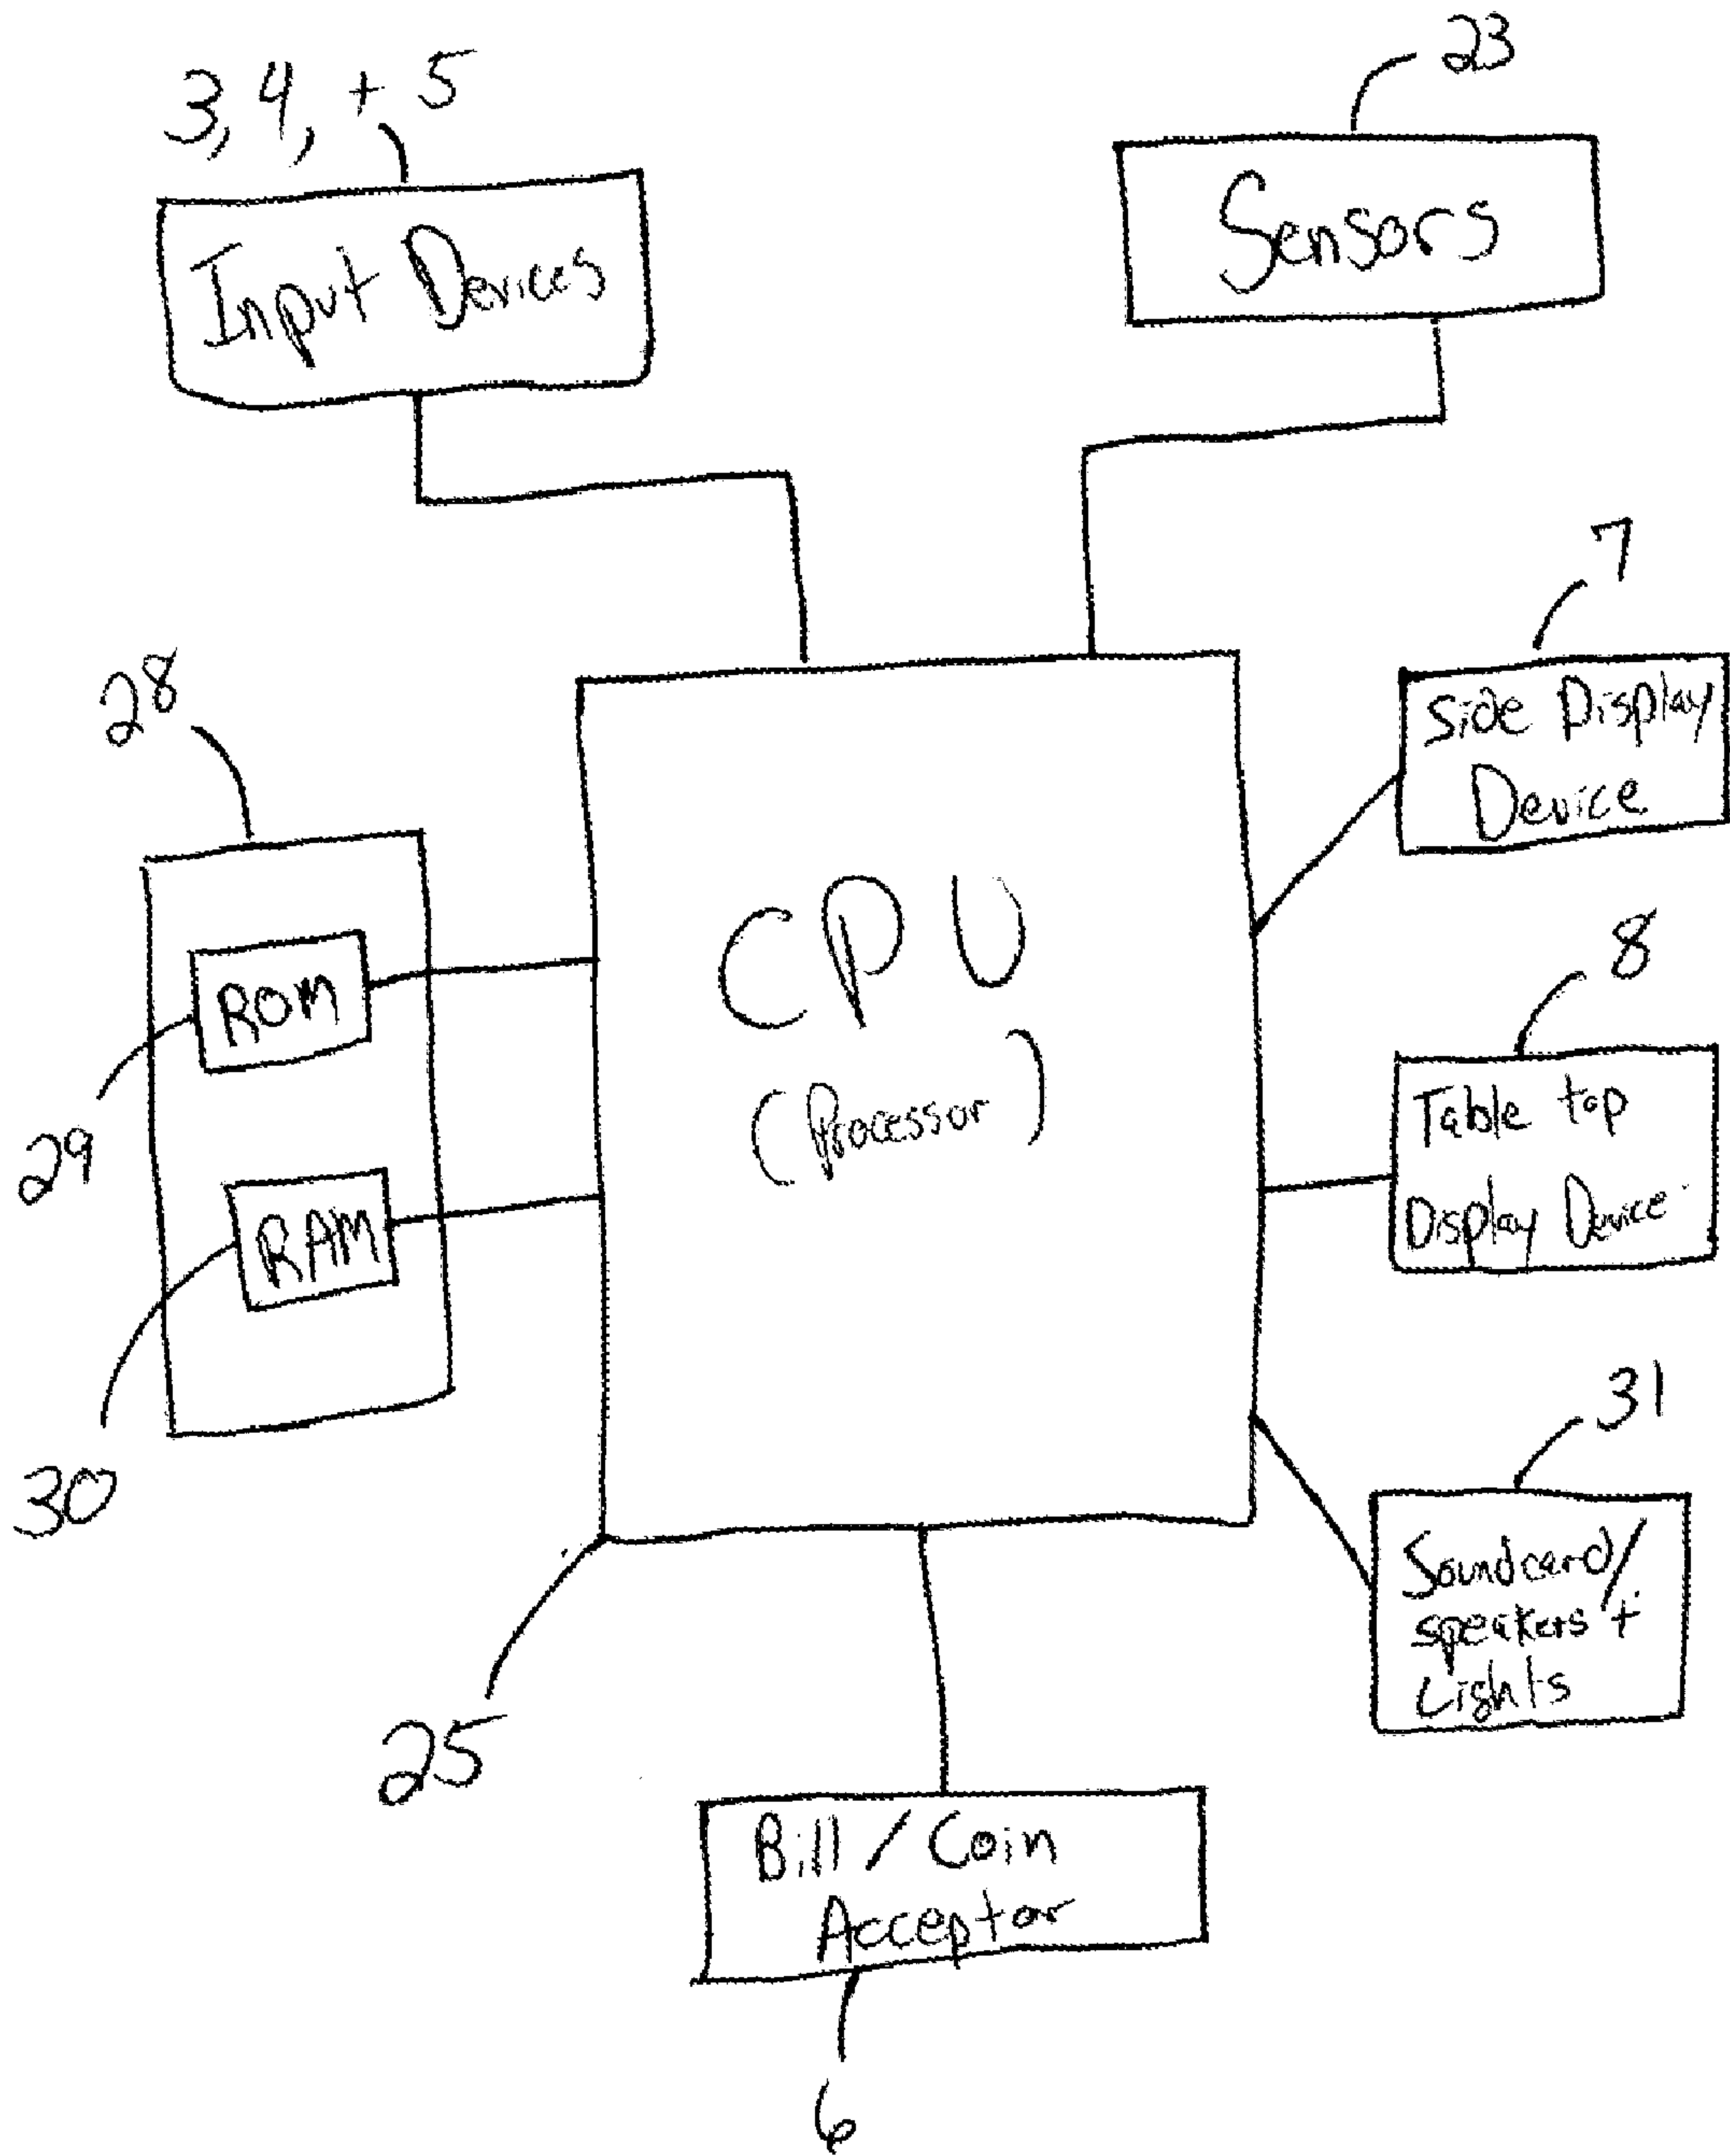 3, 4, + 5
23
Input Devices
Sensors
7
Side Display
Device
28
CPU
(Processor)
ROM
29
8
Table top
Display Device
RAM
30
31
Soundcard/
speakers +
Lights
25
Bill / Coin
Acceptor
6